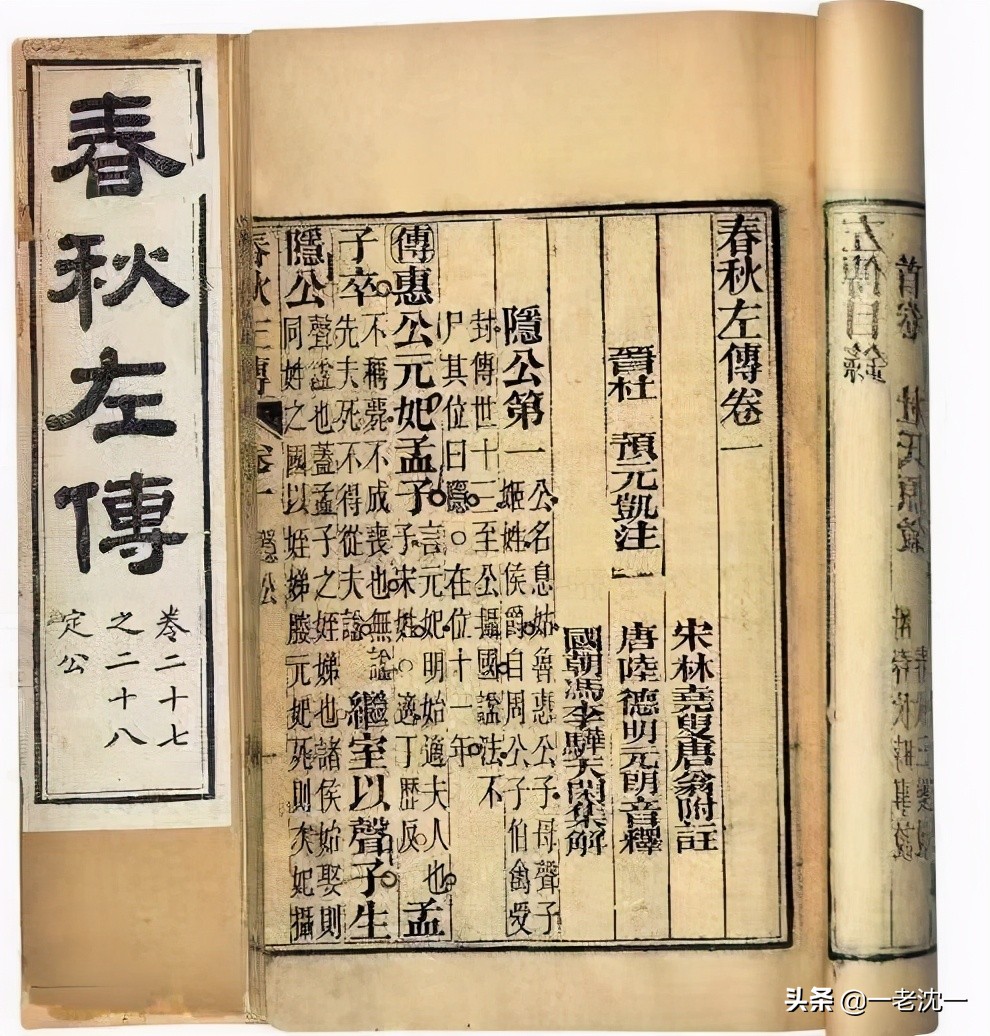 春秋左傳
卷二十七
之二十八
定公
左傳目錄
首卷
春秋左傳卷一
宋林堯叟唐翁附註
晉杜 預元凱注 唐陸德明元朗音釋
國朝馮李驊天閑集解
隱公第一 公名息姑魯惠公子母聲子
姬姓侯爵自周公子伯禽受
封傳世十二至公攝國謚法不
尸其位曰隱。在位十一年
傳惠公元妃孟子。言元妃明始適夫人也
子宋姓。適丁歷反 孟
子卒。不稱薨不成喪也無謚
先夫死不得從夫謚 繼室以聲子生
隱公 聲謚也蓋孟子之姪娣也諸侯始娶則
同姓之國以姪娣媵元妃死則次妃攝
卷一 隱公
头条 @一老沈一